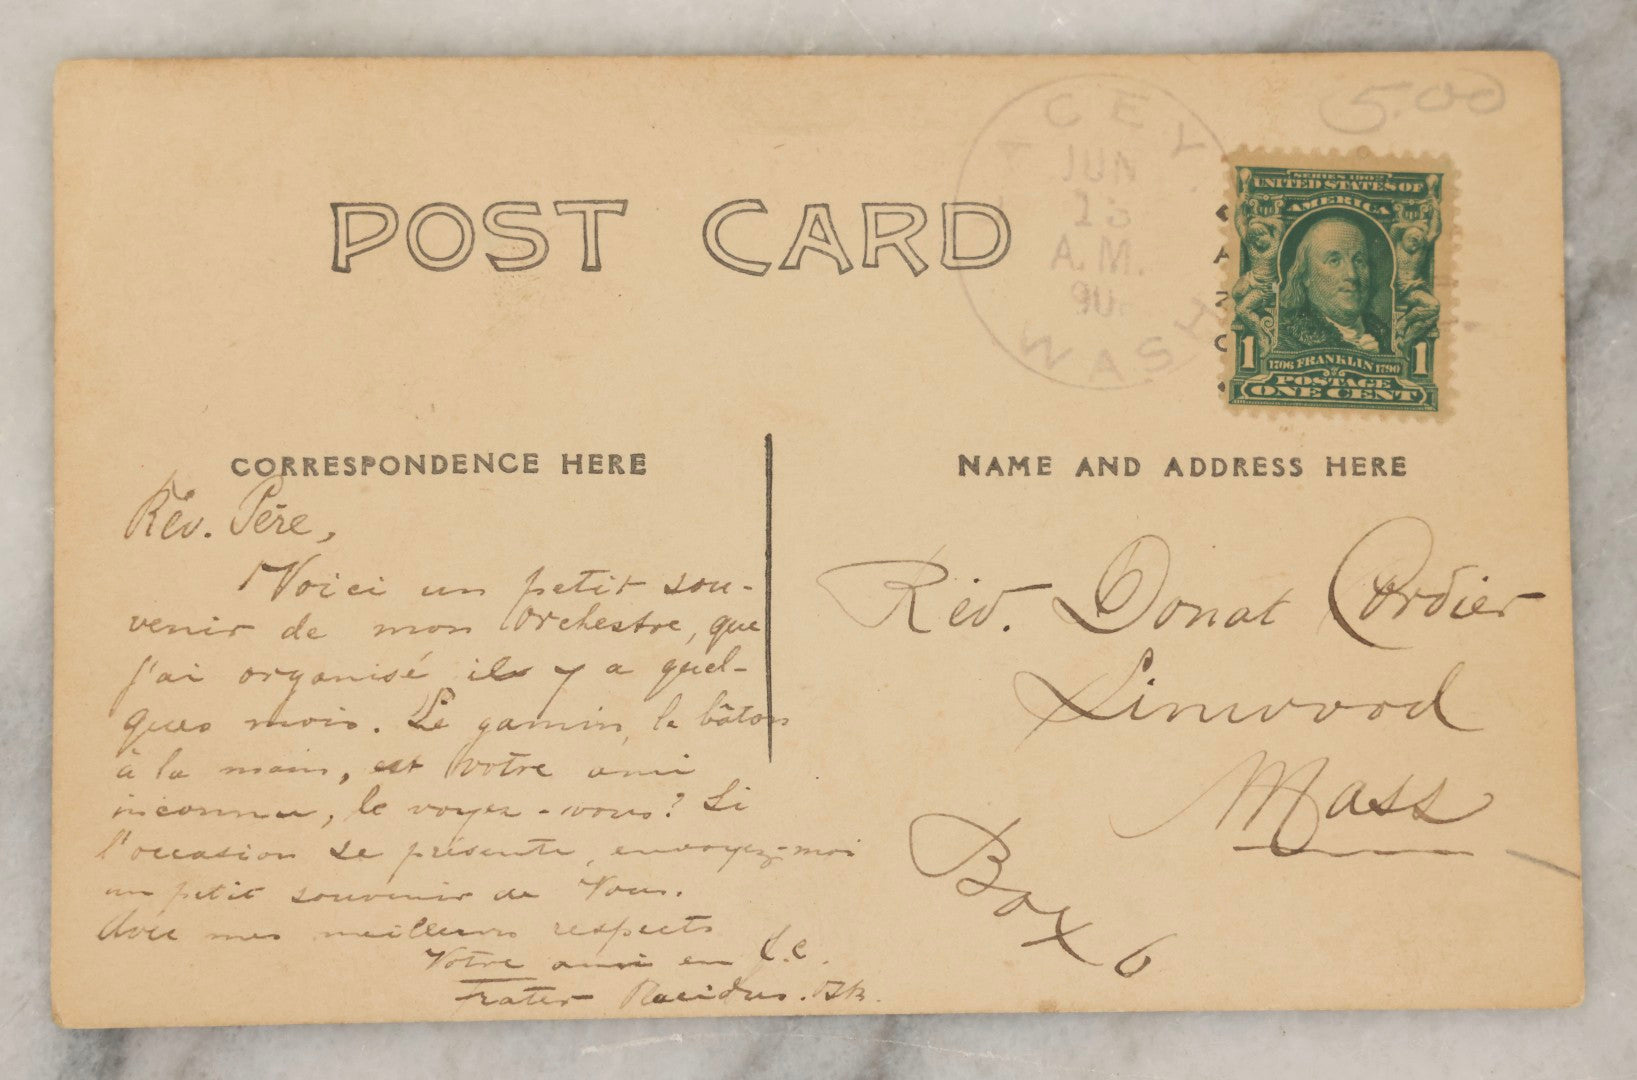 5.00
LACEY
JUN
A.M.
WASH
SERIES 1902
UNITED STATES OF
AMERICA
1 1706 FRANKLIN 1790 1
POSTAGE
ONE CENT
POST CARD
CORRESPONDENCE HERE
Rév. Père,
Voici un petit sou-
venir de mon Orchestre, que
j'ai organisé il y a quel-
ques mois. Le gamin, le bâton
à la main, est votre ami
inconnu, le voyez-vous? Si
l'occasion se présente, envoyez-moi
un petit souvenir de Vous.
Avec mes meilleurs respects
Votre ami en J.C.
Frater Placidus.
NAME AND ADDRESS HERE
Rév. Donat Cordier
Linwood
Mass
Box 6